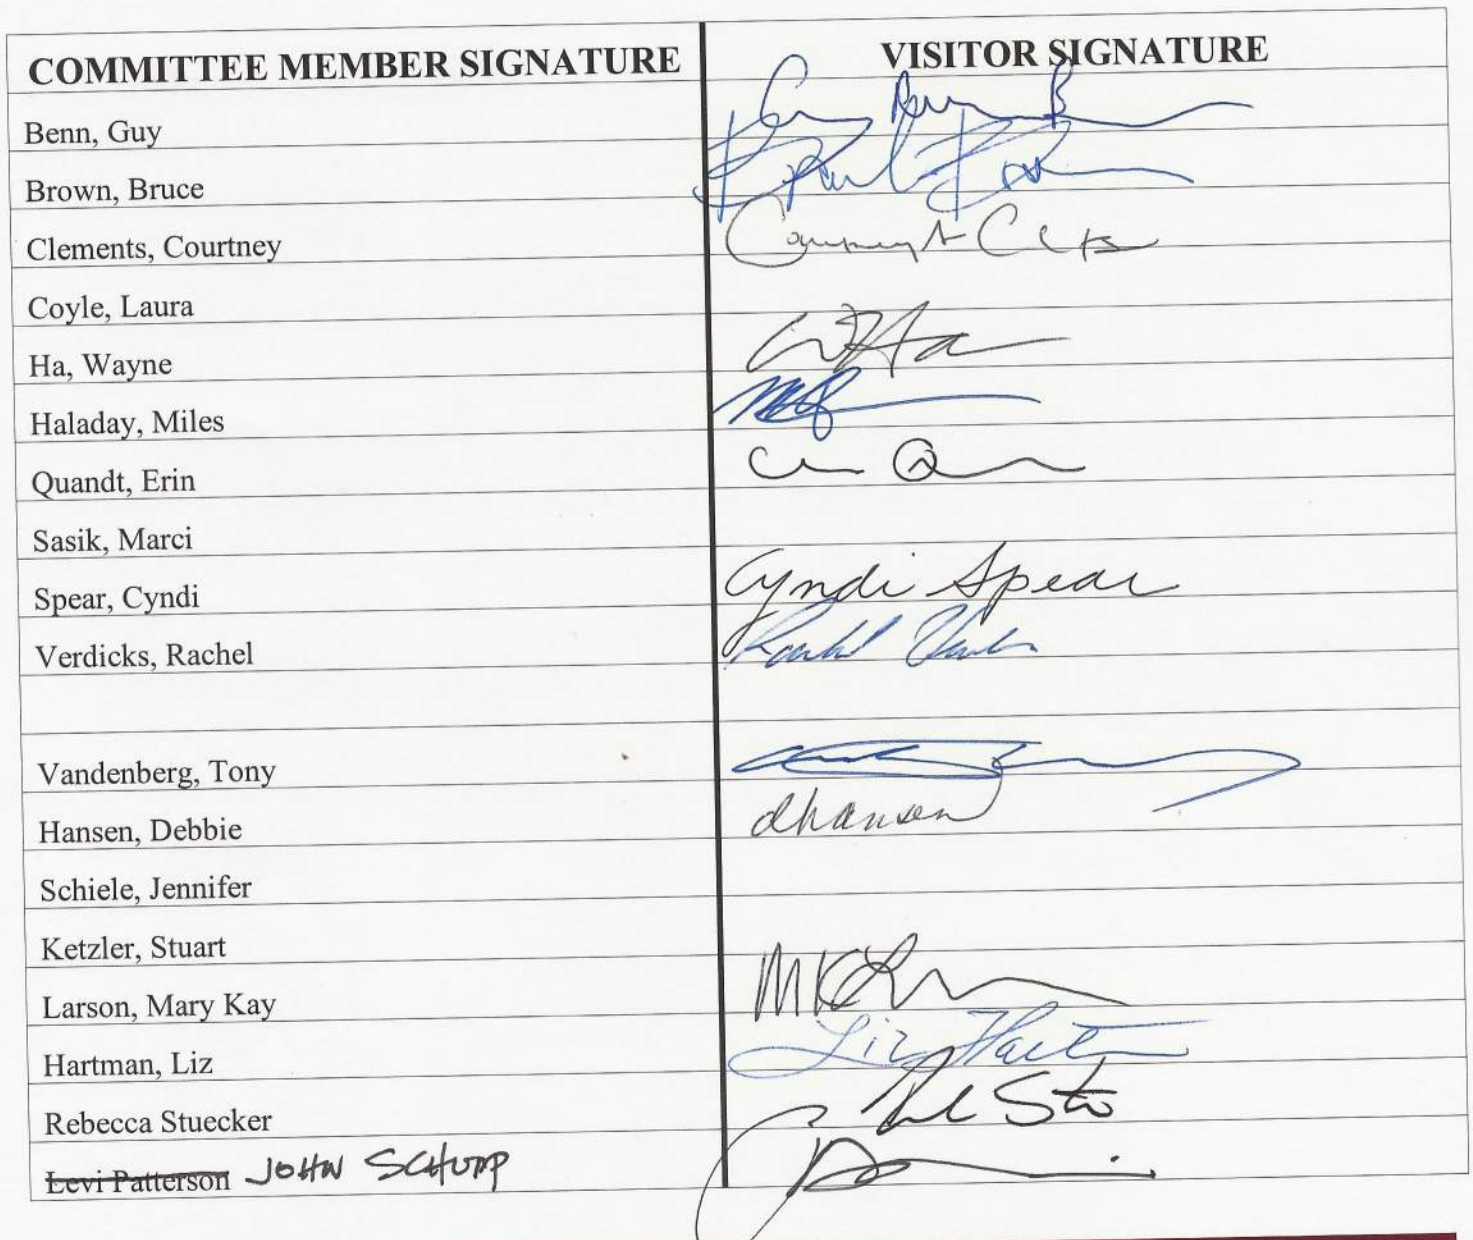 COMMITTEE MEMBER SIGNATURE VISITOR SIGNATURE
Benn, Guy
Brown, Bruce
Clements, Courtney
Coyle, Laura
Ha, Wayne WHa
Haladay, Miles
Quandt, Erin
Sasik, Marci
Spear, Cyndi Cyndi Spear
Verdicks, Rachel
Vandenberg, Tony
Hansen, Debbie dhansen
Schiele, Jennifer
Ketzler, Stuart
Larson, Mary Kay
Hartman, Liz Liz
Rebecca Stuecker
Levi Patterson JOHN SCHUMP